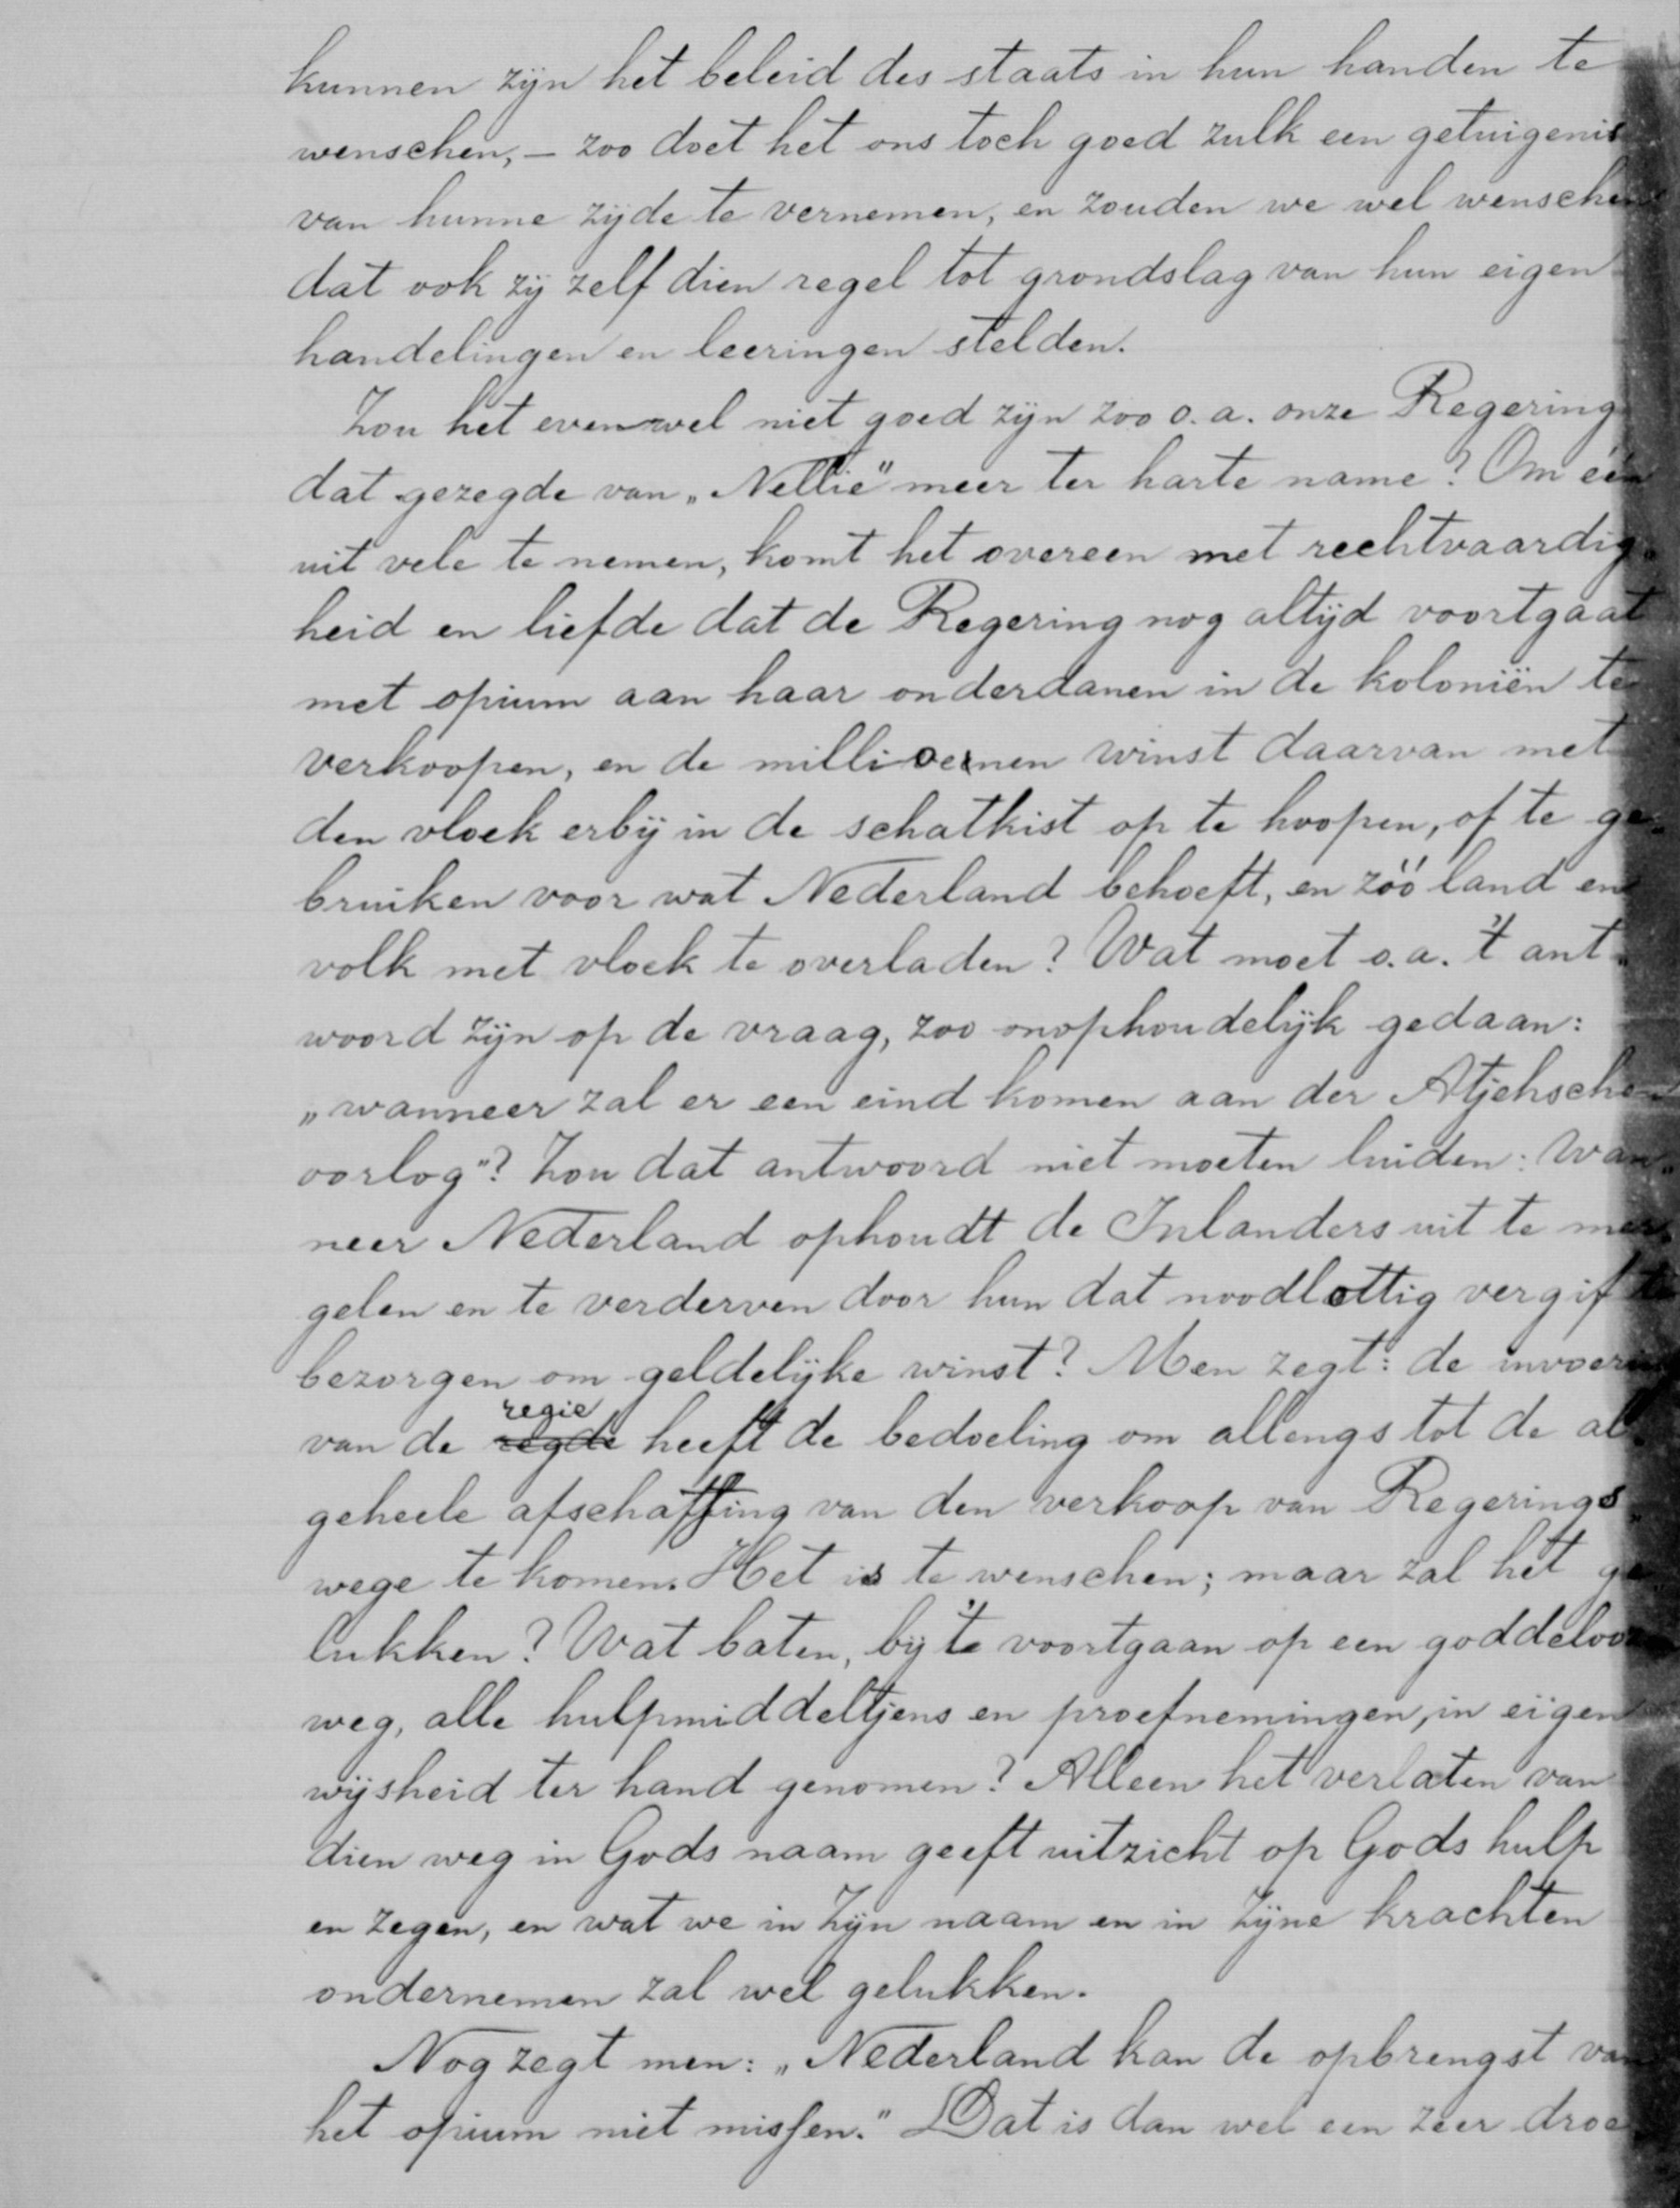 kunnen zijn het beleid des staats in hun handen te
wenschen, — zoo doet het ons toch goed zulk een getuigenis
van hunne zijde te vernemen, en zouden we wel wenschen
dat ook zij zelf dien regel tot grondslag van hun eigen
handelingen en leeringen stelden.
Zou het evenwel niet goed zijn zoo o.a. onze Regering
dat gezegde van „Nellie" meer ter harte name? Om één
uit vele te nemen, komt het overeen met rechtvaardig-
heid en liefde dat de Regering nog altijd voortgaat
met opium aan haar onderdanen in de koloniën te
verkoopen, en de millioenen winst daarvan met
den vloek erbij in de schatkist op te hoopen, of te ge-
bruiken voor wat Nederland behoeft, en zóó land en
volk met vloek te overladen? Wat moet o.a. 't ant-
woord zijn op de vraag, zoo onophoudelijk gedaan:
„wanneer zal er een eind komen aan der Atjehsche
oorlog"? Zou dat antwoord niet moeten luiden: Wan-
neer Nederland ophoudt de Inlanders uit te mer-
gelen en te verderven door hun dat noodlottig vergif te
bezorgen om geldelijke winst? Men zegt: de invoering
van de regde regie heeft de bedoeling om allengs tot de al-
geheele afschaffing van den verkoop van Regerings-
wege te komen. Het is te wenschen; maar zal het ge
lukken? Wat baten, bij 't voortgaan op een goddeloo
weg, alle hulpmiddeltjens en proefnemingen, in eigen
wijsheid ter hand genomen? Alleen het verlaten van
dien weg in Gods naam geeft uitzicht op Gods hulp
en zegen, en wat we in Zijn naam en in Zijne krachten
ondernemen zal wel gelukken.
Nog zegt men: „Nederland kan de opbrengst van
het opium niet missen." Dat is dan wel een zeer droe